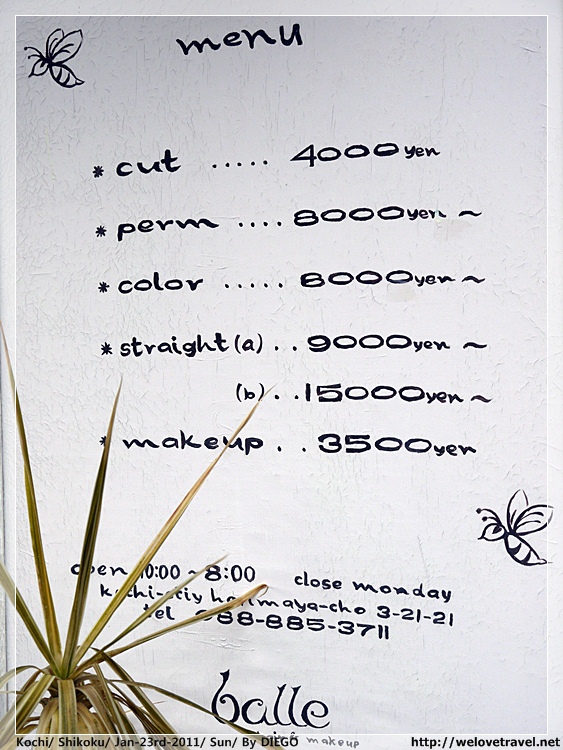 menu
* cut ..... 4000yen
* perm .... 8000yen ~
* color ..... 6000yen ~
* straight (a) .. 9000yen ~
(b) .. 15000yen ~
* makeup .. 3500yen
open 10:00 ~ 8:00 close monday
harimaya-cho 3-21-21
tel 088-885-3711
balle
makeup
Kochi/ Shikoku/ Jan-23rd-2011/ Sun/ By DIEGO http://welovetravel.net